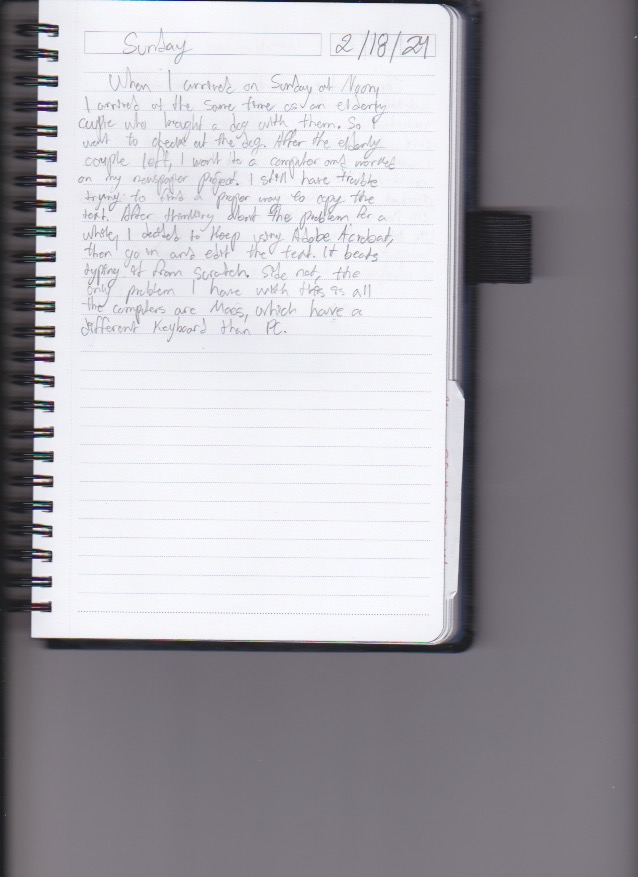 Sunday 2/18/24
When I arrived on Sunday at Noon,
I arrived at the same time as an elderly
couple who brought a dog with them. So I
went to check out the dog. After the elderly
couple left, I went to a computer and worked
on my newspaper project. I still have trouble
trying to find a proper way to copy the
text. After thinking about the problem for a
while, I decided to Keep using Adobe Acrobat,
then go in and edit the text. It beats
typing it from scratch. Side not, the
only problem I have with this is all
the computers are Macs, which have a
different Keyboard than PC.